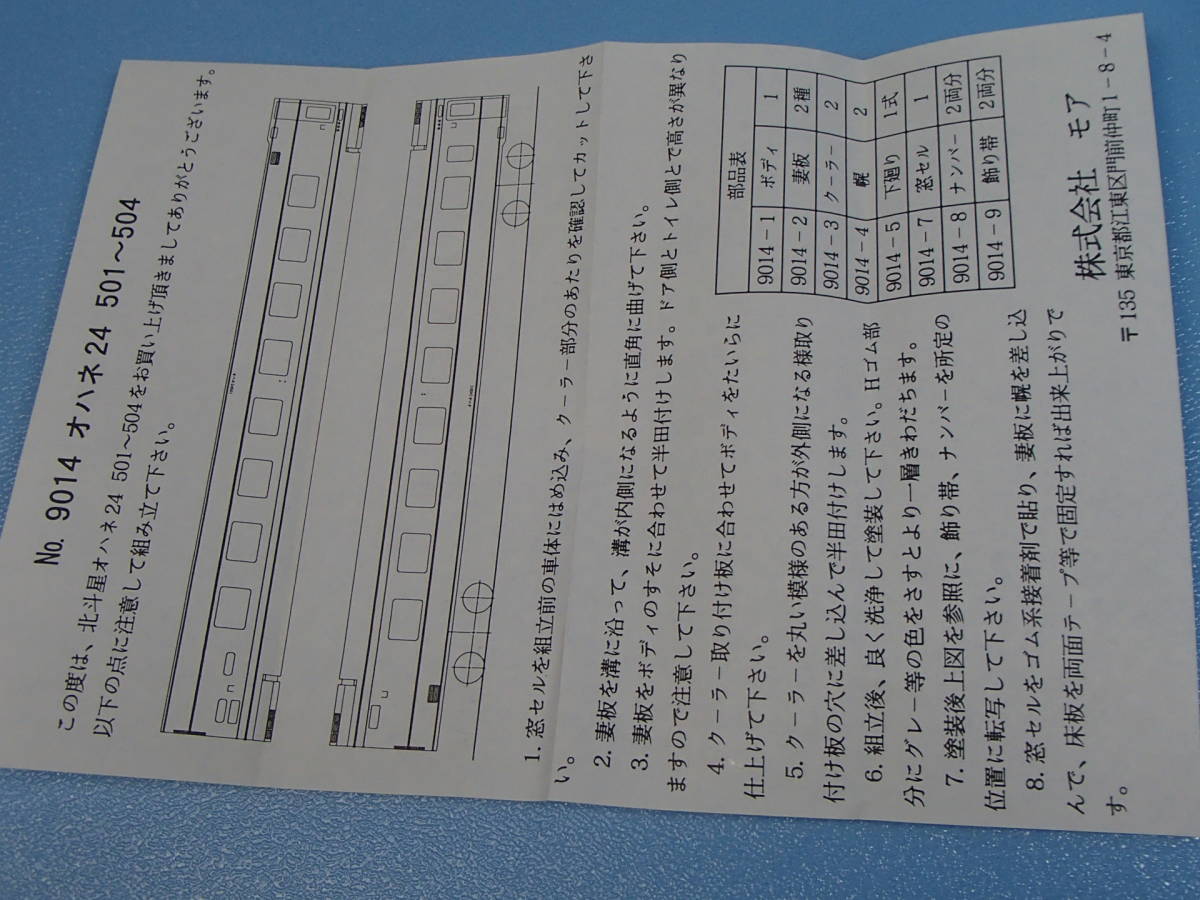 No. 9014 オハネ24 501～504
この度は、北斗星オハネ24 501～504をお買い上げ頂きましてありがとうございます。
以下の点に注意して組み立て下さい。
1. 窓セルを組立前の車体にはめ込み、クーラー部分のあたりを確認してカットして下さ
い。
2. 妻板を溝に沿って、溝が内側になるように直角に曲げて下さい。
3. 妻板をボディのすそに合わせて半田付けします。ドア側とトイレ側とで高さが異なり
ますので注意して下さい。
4. クーラー取り付け板に合わせてボディをたいらに
仕上げて下さい。
5. クーラーを丸い模様のある方が外側になる様取り
付け板の穴に差し込んで半田付けします。
6. 組立後、良く洗浄して塗装して下さい。Hゴム部
分にグレー等の色をさすとより一層きわだちます。
7. 塗装後上図を参照に、飾り帯、ナンバーを所定の
位置に転写して下さい。
8. 窓セルをゴム系接着剤で貼り、妻板に幌を差し込
んで、床板を両面テープ等で固定すれば出来上がりで
す。
部品表
9014－1 ボディ 1
9014－2 妻板 2種
9014－3 クーラー 2
9014－4 幌 2
9014－5 下廻り 1式
9014－7 窓セル 1
9014－8 ナンバー 2両分
9014－9 飾り帯 2両分
株式会社 モア
〒135 東京都江東区門前仲町1－8－4